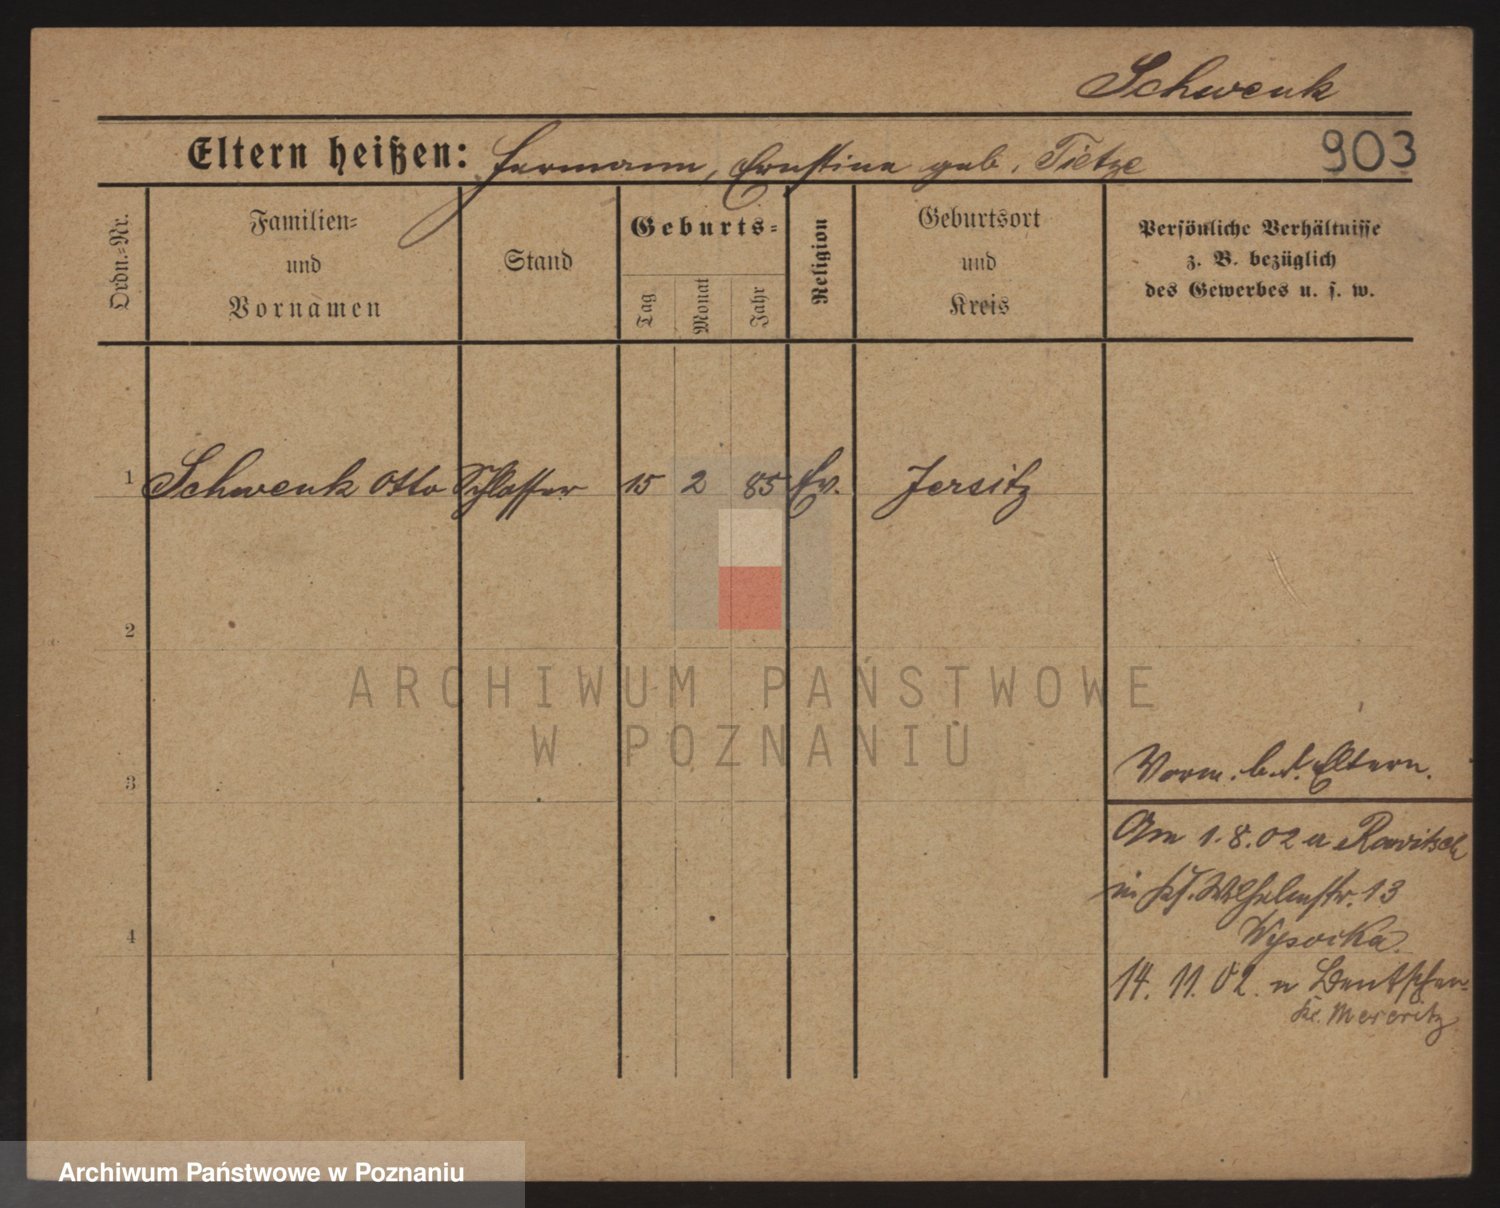 Schwenk
Eltern heißen: Hermann, Ernstine geb. Tietze
903
Ordn.=Nr.
Familien=
und
Vornamen
Stand
Geburts=
Tag
Monat
Jahr
Religion
Geburtsort
und
Kreis
Persönliche Verhältnisse
z. B. bezüglich
des Gewerbes u. s. w.
1 Schwenk Otto Schlosser 15 2 85 Ev. Jersitz
2
ARCHIWUM PAŃSTWOWE
W POZNANIU
3
Vorm. b. d. Eltern.
Am 1.8.02 a Rawitsch
in Wilhelmstr. 13
4
Wysocka.
14. 11. 02. n Bentschen
Kr. Meseritz
Archiwum Państwowe w Poznaniu